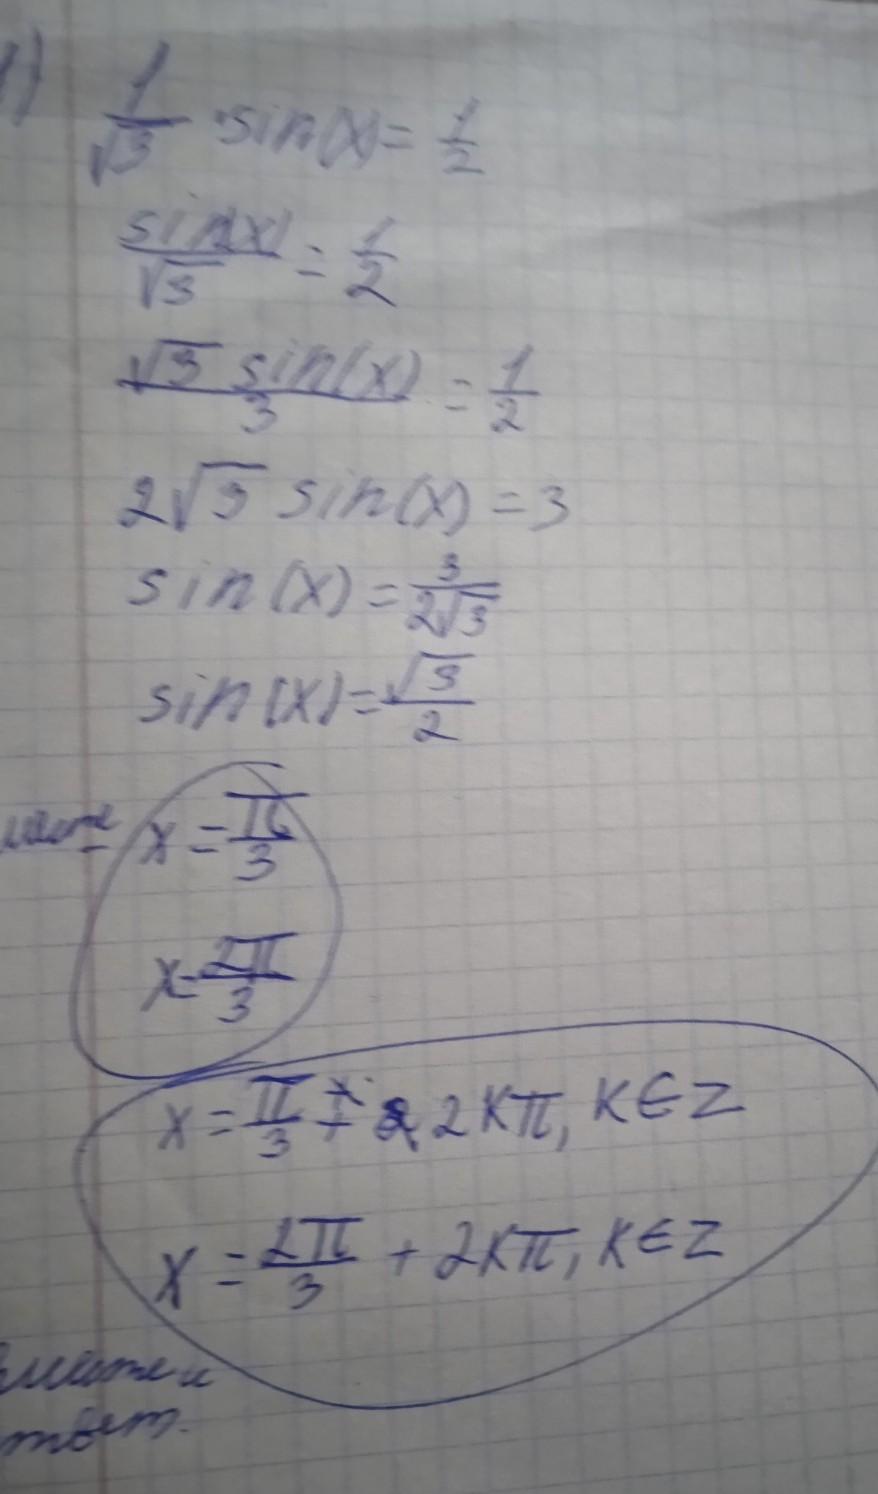 1) 1/√3 · sin(x) = 1/2
sin(x)/√3 = 1/2
√3 sin(x)/3 = 1/2
2√3 sin(x) = 3
sin(x) = 3/2√3
sin(x) = √3/2
x = π/3
x = 2π/3
x = π/3 + 2kπ, k∈Z
x = 2π/3 + 2kπ, k∈Z